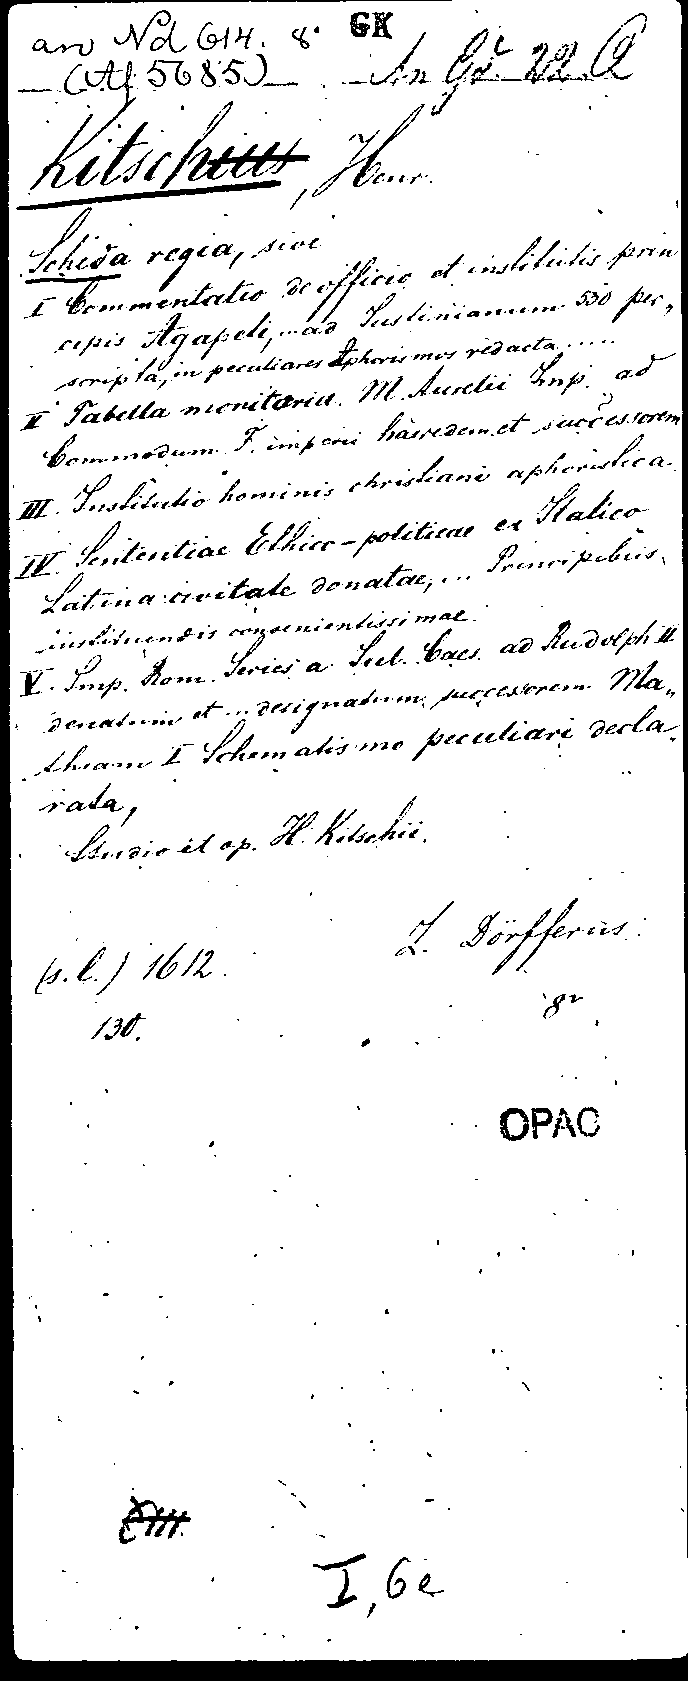 an Nd 614. 8° GK
(Af 5685) An Gs 22 A
Kitschius, Henr.
Scheda regia, sive
I Commentatio de officio et institutis prin
cipis Agapeti, ... ad Justinianum 530 per„
scripta, in peculiares Aphorismos redacta .....
II Tabella monitoria M. Aurelii Imp. ad
Commodum F. imperii haeredem et successorem
III. Institutio hominis christiani aphoristica.
IV. Sententiae Ethico-politicae ex Italico
Latina civitate donatae, ... Principibus
instituendis convenientissimae.
V. Imp. Rom. Series a Jul. Caes. ad Rudolph II
denatum et ... designatum successorem Ma„
thiam I Schematismo peculiari decla„
rata,
Studio et op. H. Kitschii.
(s. l.) 1612. Z. Dörfferus.
130. 8°
OPAC
XIII.
I, 6e